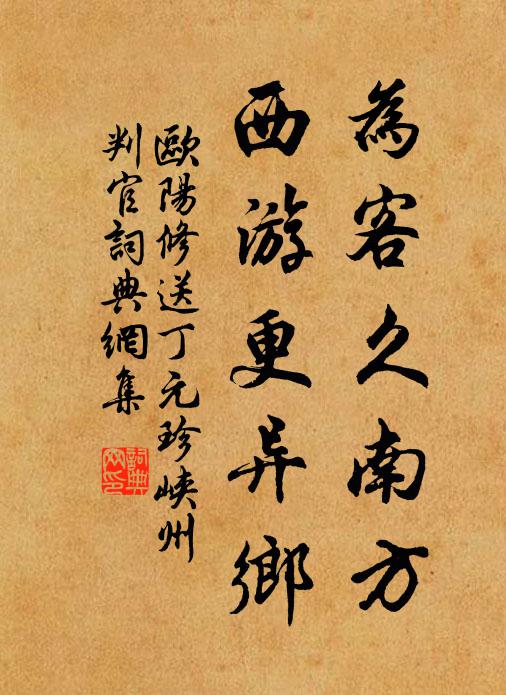 為客久南方
西游更异鄉
歐陽修送丁元珍峽州
判官詞典網集
詞典網印